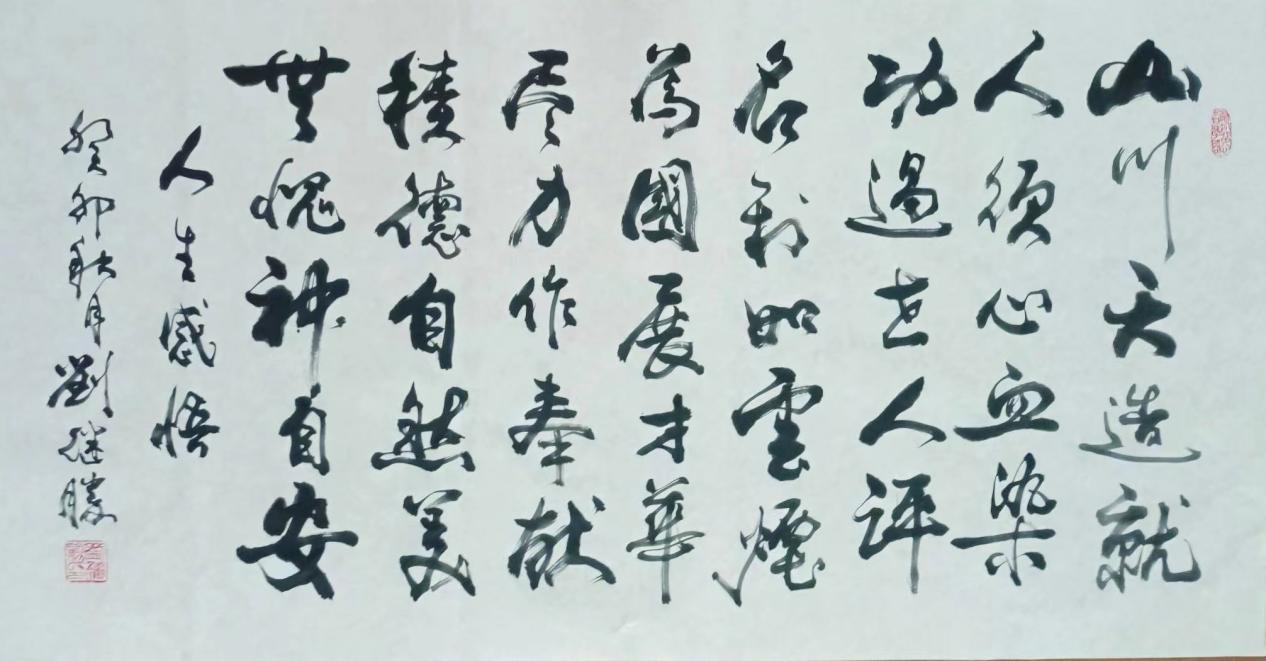 山川天造就
人须心血染
功過世人评
名利如雲煙
為國展才華
尽力作奉献
積德自然美
無愧神自安
人生感悟
癸卯秋月劉继勝